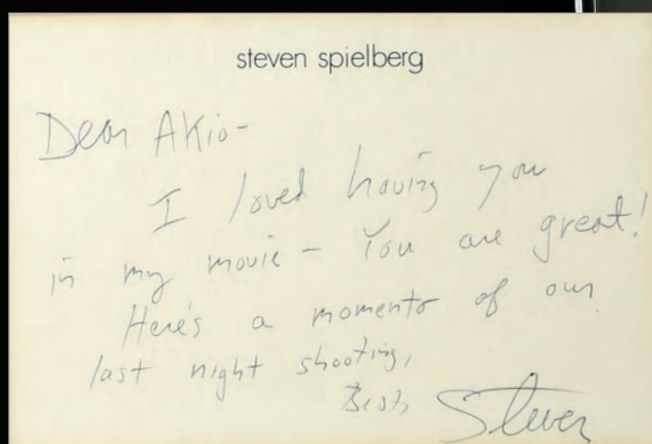 steven spielberg
Dear Akio-
I loved having you
in my movie – You are great!
Here's a momento of our
last night shooting,
Best,
Steven